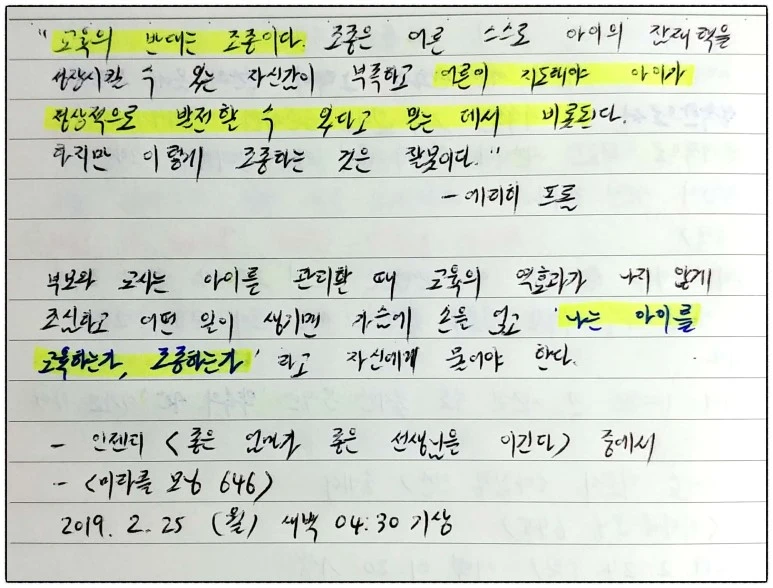 "교육의 반대는 조종이다. 조종은 어른 스스로 아이의 잠재력을
성장시킬 수 있는 자신감이 부족하고 어른이 지도해야 아이가
정상적으로 발전할 수 있다고 믿는 데서 비롯된다.
하지만 이렇게 조종하는 것은 잘못이다."
- 에리히 프롬
부모와 교사는 아이를 관리할 때 교육의 역효과가 나지 않게
조심하고 어떤 일이 생기면 가슴에 손을 얹고 '나는 아이를
교육하는가, 조종하는가' 라고 자신에게 물어야 한다.
- 인젠리 <좋은 엄마가 좋은 선생님을 이긴다> 중에서
- <미라클 모닝 646>
2019. 2. 25 (월) 새벽 04:30 기상